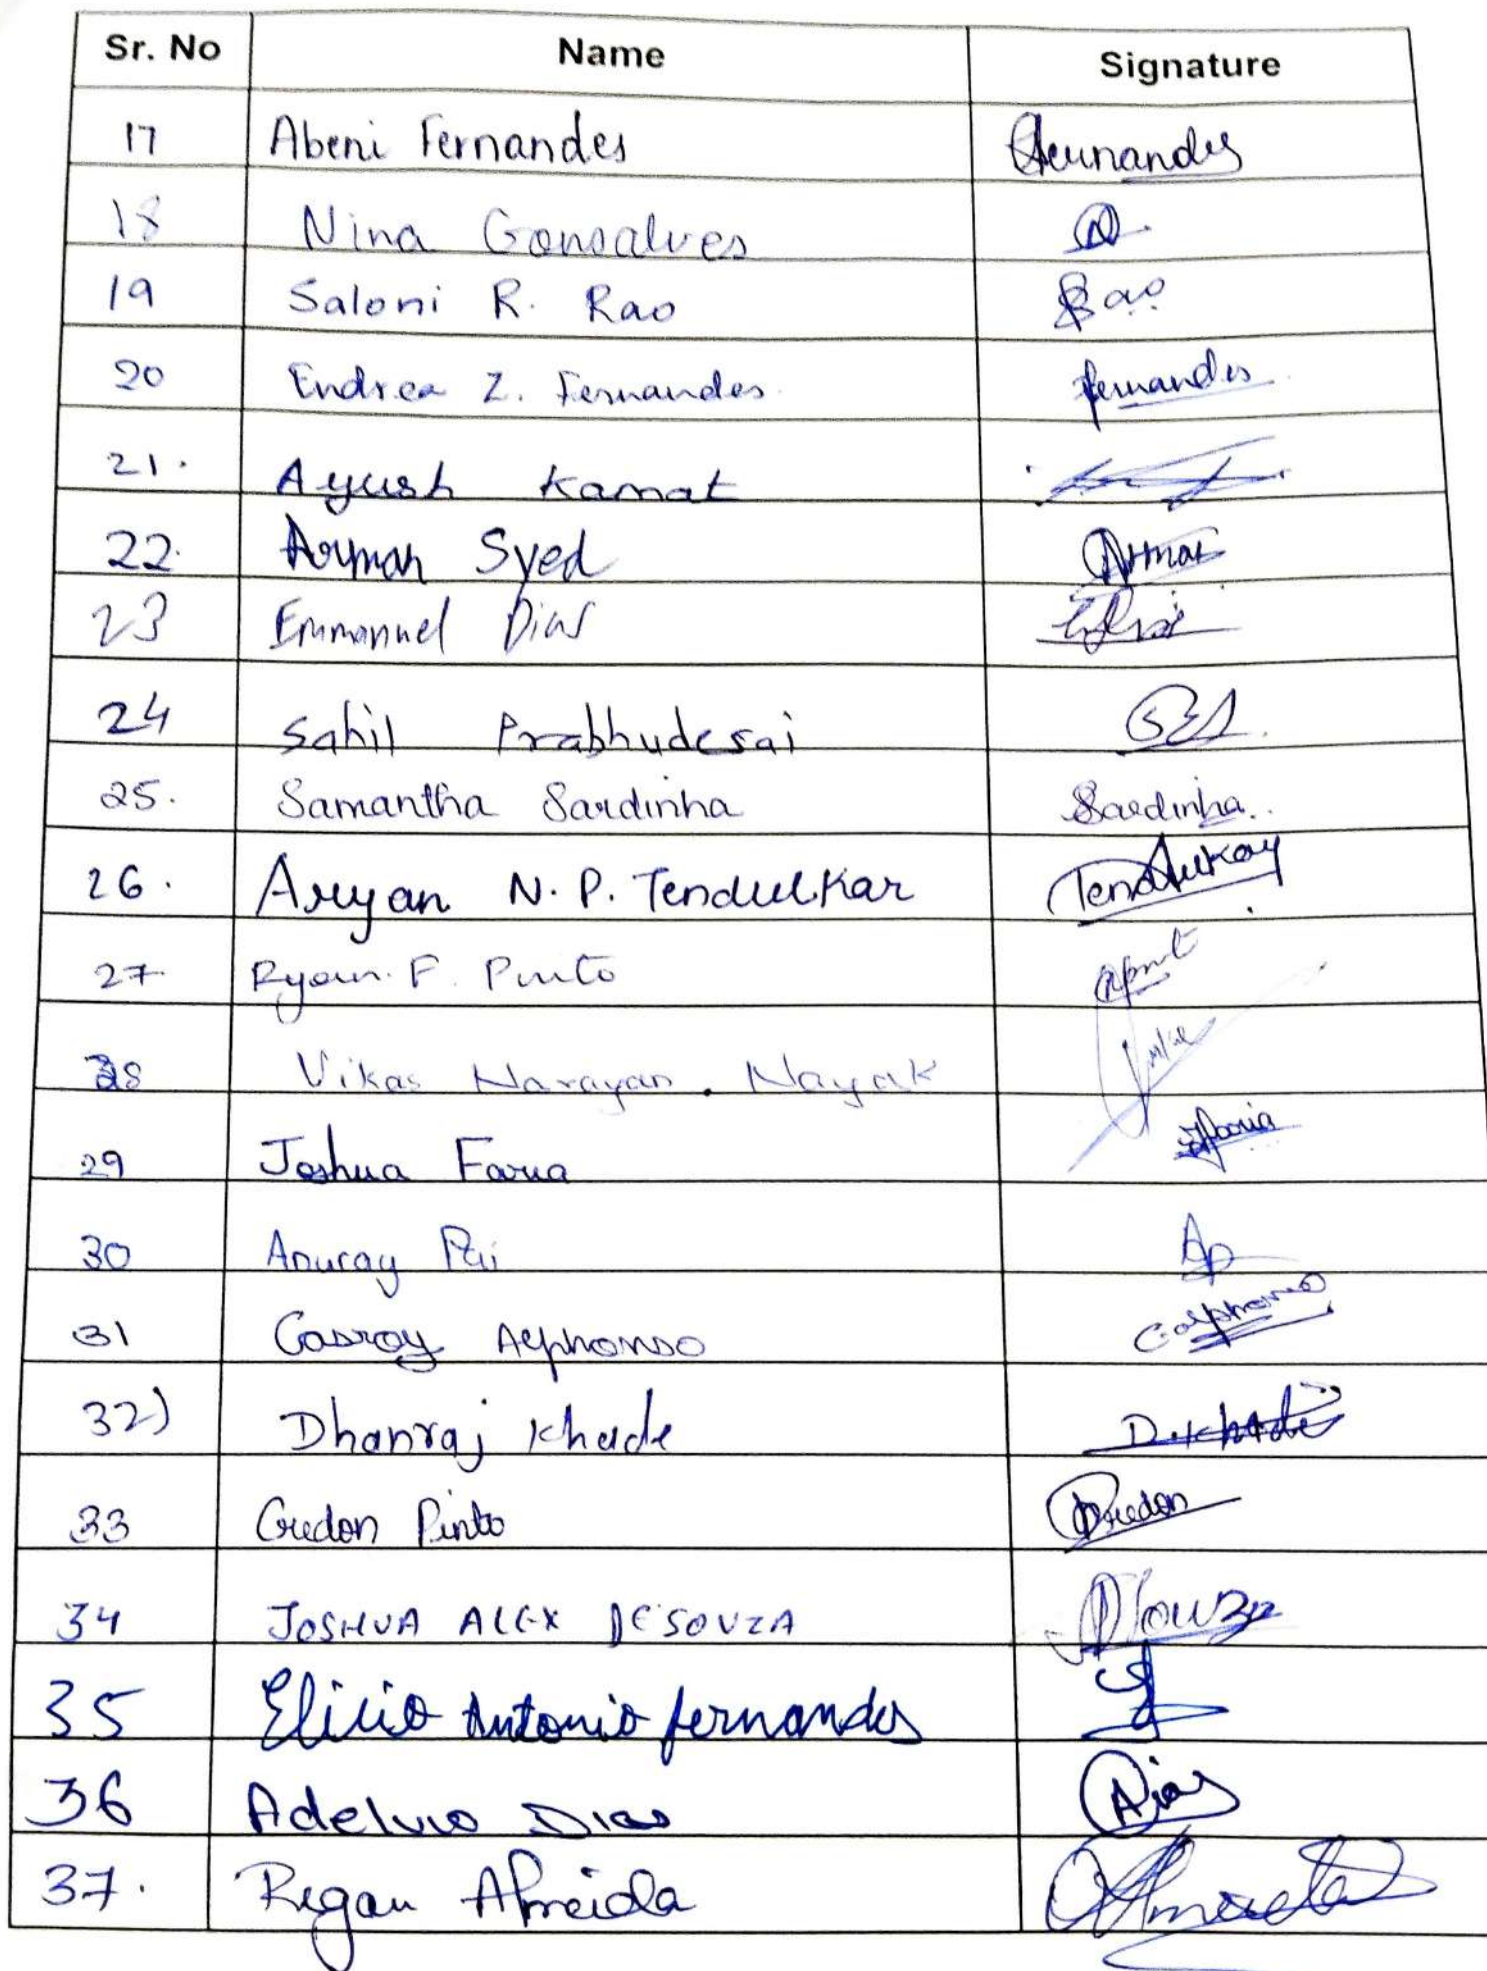 Sr. No Name Signature
17 Abeni Fernandes Fernandes
18 Nina Gonsalves
19 Saloni R. Rao Rao
20 Endrea Z. Fernandes. Fernandes
21. Ayush Kamat
22. Arman Syed Arman
23 Emmanuel Dias
24 Sahil Prabhudesai
25. Samantha Sardinha Sardinha..
26. Aryan N. P. Tendulkar Tendulkar
27 Ryan. F. Pinto
28 Vikas Narayan. Nayak
29 Joshua Faria JFaria
30 Anurag Pai AP
31 Casroy Alphonso C.alphonso
32) Dhanraj Khade D.Khade
33 Gredon Pinto Gredon
34 JOSHUA ALEX DESOUZA
35 Elicio Antonio fernandes
36 Adelvio Dias Dias
37. Regan Almeida Almeida